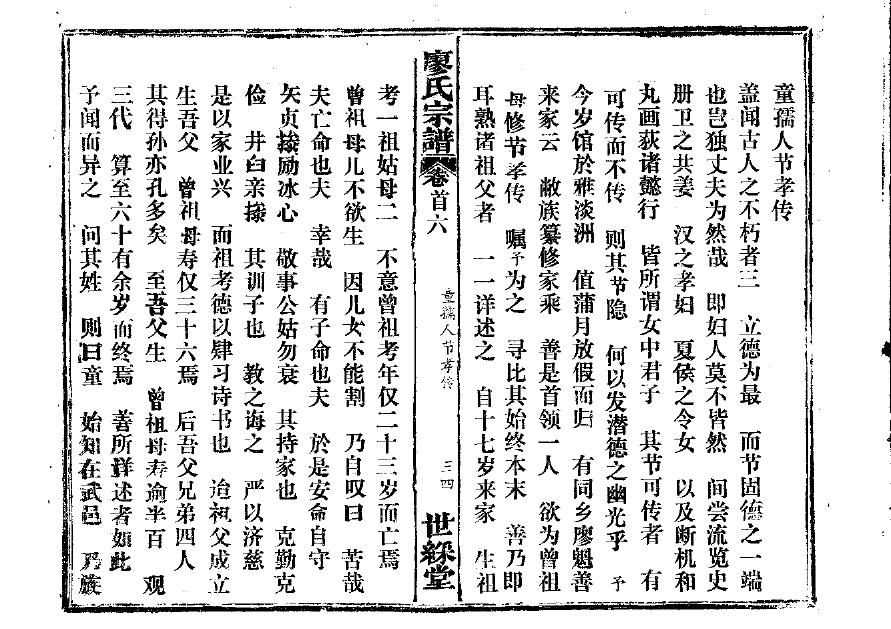 童孺人节孝传
盖闻古人之不朽者三 立德为最 而节固德之一端
也岂独丈夫为然哉 即妇人莫不皆然 间尝流览史
册卫之共姜 汉之孝妇 夏侯之令女 以及断机和
丸画荻诸懿行 皆所谓女中君子 其节可传者 有
可传而不传 则其节隐 何以发潜德之幽光乎 予
今岁馆於雅淡洲 值蒲月放假而归 有同乡廖魁善
来家云 敝族纂修家乘 善是首领一人 欲为曾祖
母修节孝传 嘱予为之 寻比其始终本末 善乃即
耳熟诸祖父者 一一详述之 自十七岁来家 生祖
廖氏宗譜 卷首六 童孺人节孝传 三四 世綵堂
考一祖姑母二 不意曾祖考年仅二十三岁而亡焉
曾祖母几不欲生 因儿女不能割 乃自叹曰 苦哉
夫亡命也夫 幸哉 有子命也夫 於是安命自守
矢贞操励冰心 敬事公姑勿衰 其持家也 克勤克
俭 井臼亲操 其训子也 教之诲之 严以济慈
是以家业兴 而祖考德以肆习诗书也 迨祖父成立
生吾父 曾祖母寿仅三十六焉 后吾父兄弟四人
其得孙亦孔多矣 至吾父生 曾祖母寿逾半百 观
三代 算至六十有余岁而终焉 善所详述者如此
予闻而异之 问其姓 则曰童 始知在武邑 乃族